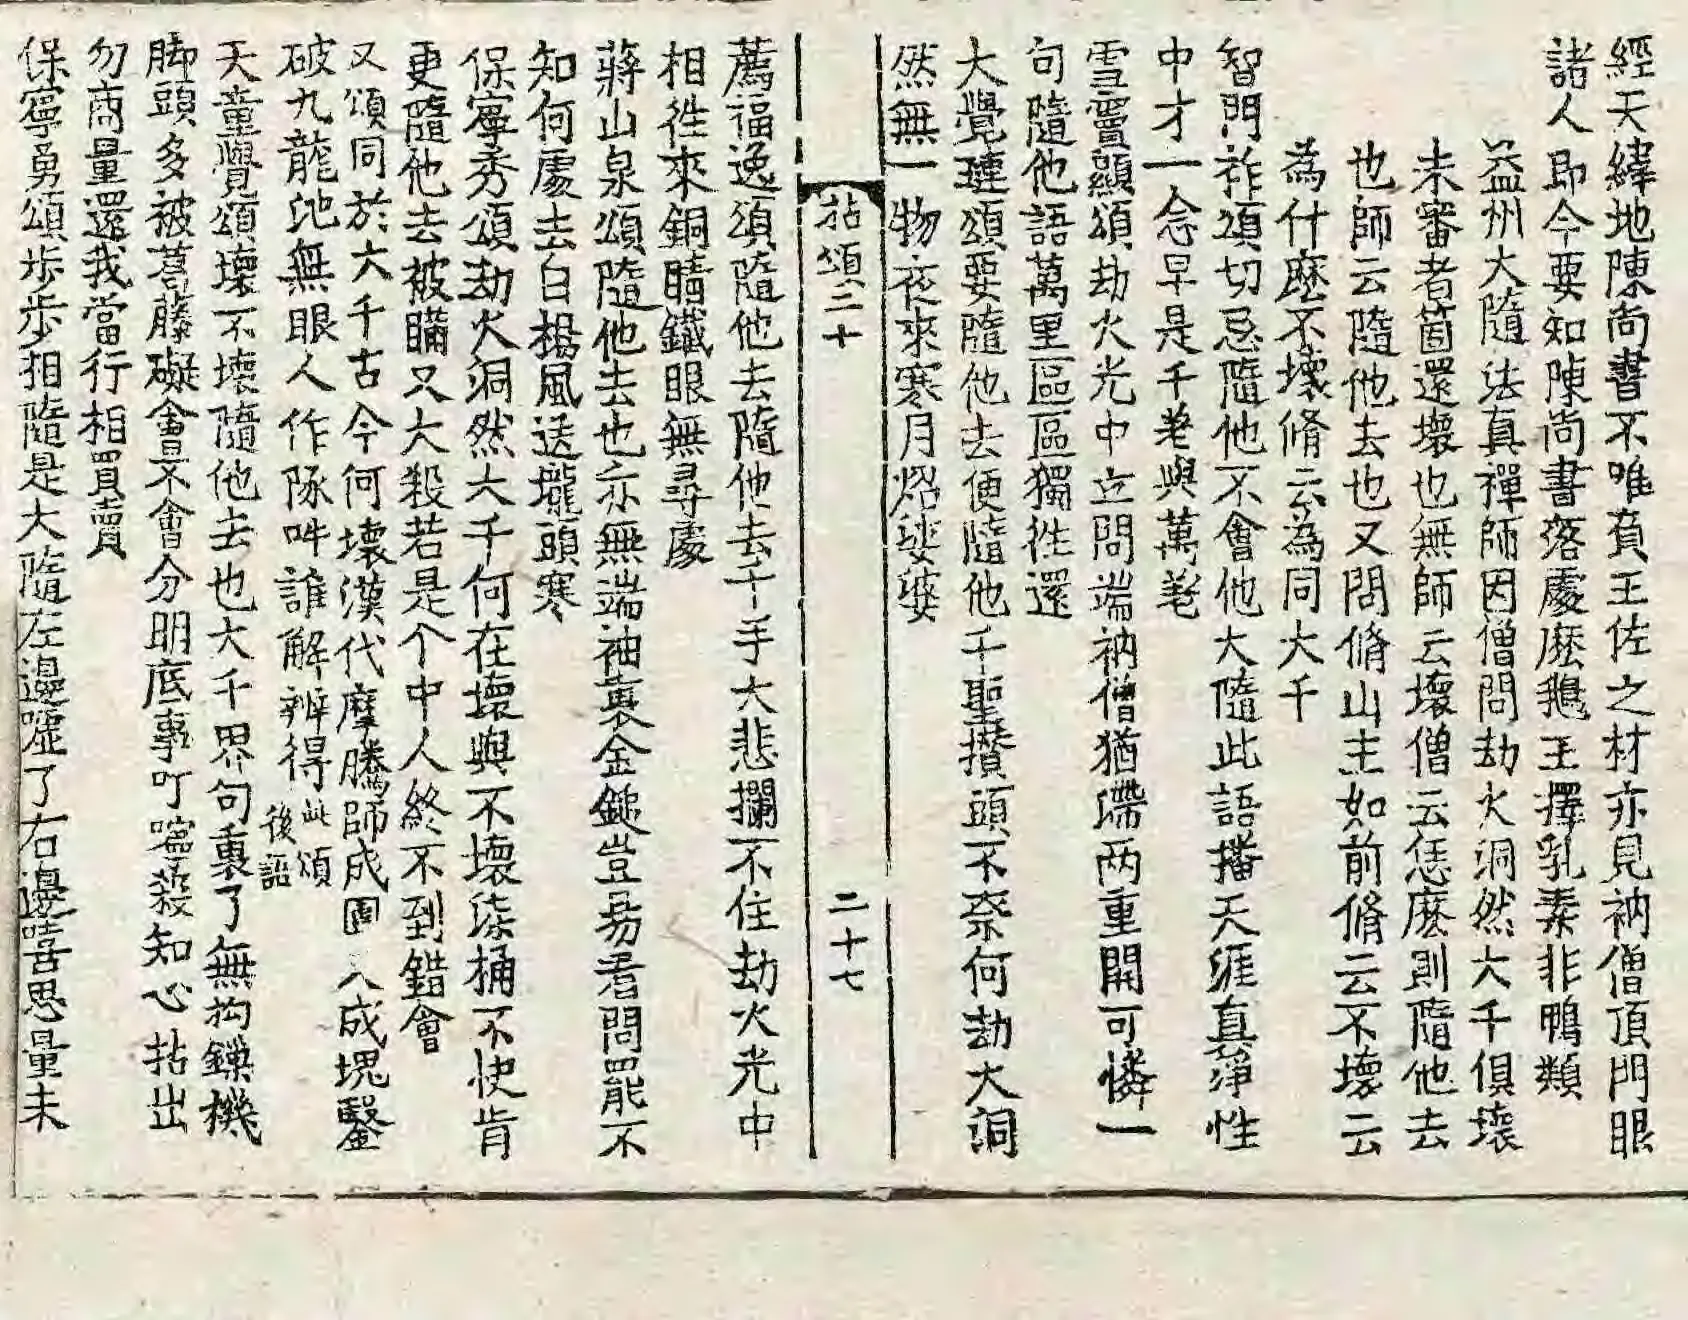 經天緯地陳尚書不唯負王佐之材亦見衲僧頂門眼
諸人即今要知陳尚書落處麽鵞王擇乳素非鴨類
益州大隨法真禪師因僧問劫火洞然大千俱壞
未審者箇還壞也無師云壞僧云恁麽則隨他去
也師云隨他去也又問脩山主如前脩云不壞云
為什麽不壞脩云為同大千
智門祚頌切忌隨他不會他大隨此語播天涯真淨性
中才一念早是千差與萬差
雪竇顯頌劫火光中立問端衲僧猶滯两重關可憐一
句隨他語萬里區區獨徃還
大覺璉頌要隨他去便隨他千聖攢頭不奈何劫火洞
然無一物夜來寒月炤娑婆
拈頌三十
二十七
薦福逸頌隨他去隨他去千手大悲攔不住劫火光中
相徃來銅睛鐵眼無尋處
蔣山泉頌隨他去也亦無端袖裏金鎚豈易看問罷不
知何處去白楊風送壠頭寒
保寧秀頌劫火洞然大千何在壞與不壞漆桶不快肯
更隨他去被瞞又大殺若是个中人終不到錯會
又頌同於大千古今何壞漢代摩騰師成團人成塊鑿
破九龍池無眼人作隊吽誰解辨得此頌後語
天童覺頌壞不壞隨他去也大千界句裏了無鉤鎖機
脚頭多被葛藤礙會不會分明底事叮嚀殺知心拈出
勿商量還我當行相買賣
保寧勇頌歩歩相隨是大隨左邊噓了右邊吹若思量未